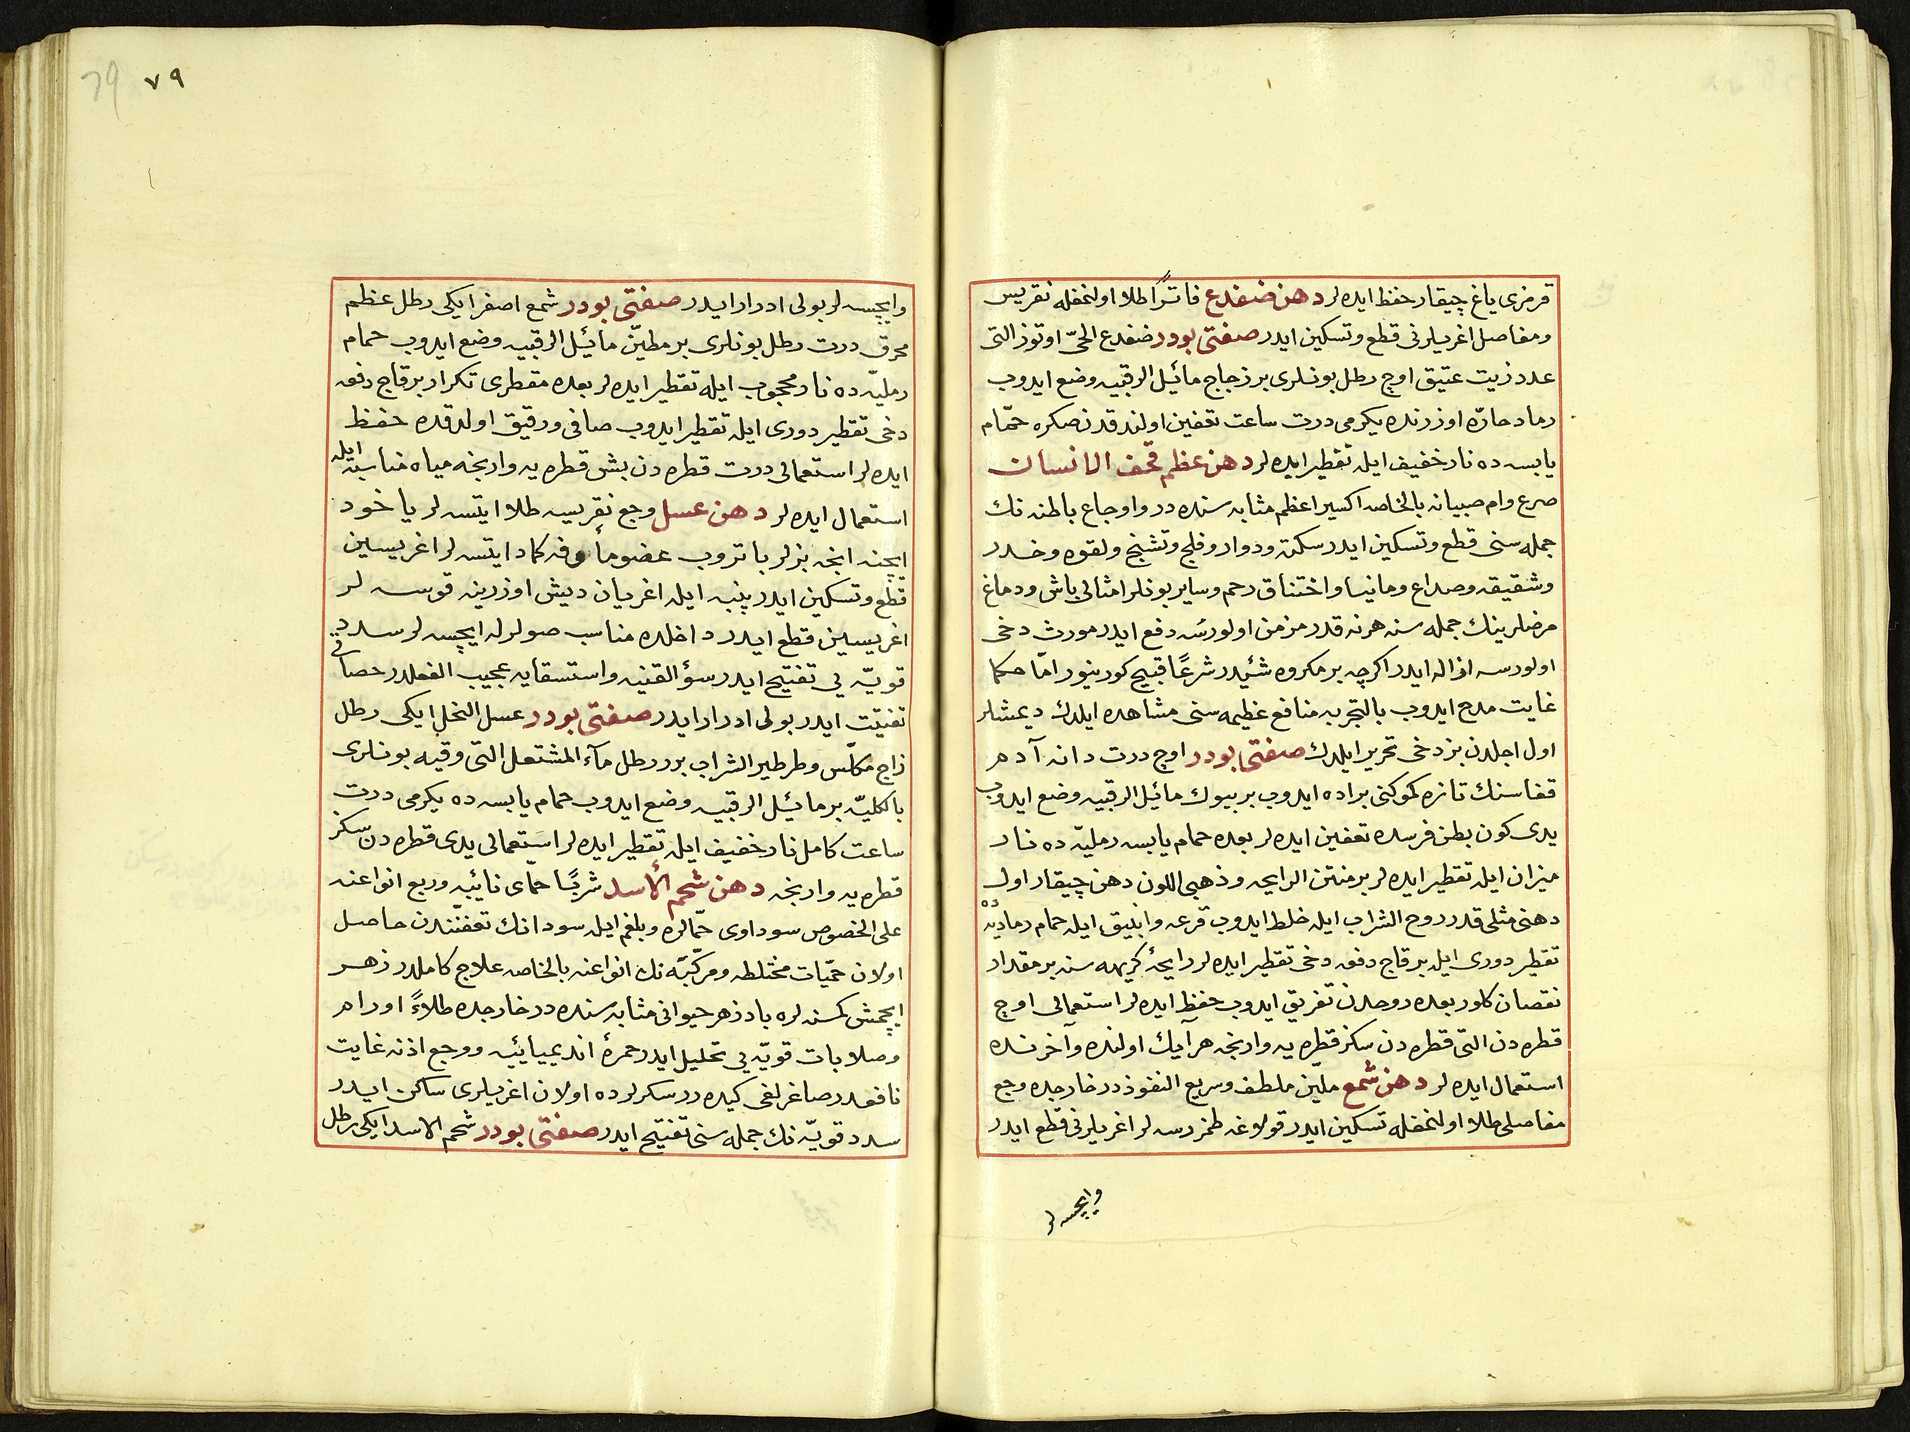 قرمزی یاغ چیقار حفظ ایده لر دهن ضفدع فاتراً طلا اولنمغله نقریس
ومفاصل اغریلرنی قطع وتسکین ایدر صفتی بودر ضفدع الحیّ اوتوز التی
عدد زیت عتیق اوچ رطل بونلری بر زجاج مائیل الرقبیه وضع ایدوب
رماد حارّه اوزرنده یکرمی درت ساعت تعفین اولندقدنصکره حمّام
یابسه ده نار خفیف ایله تقطیر ایده لر دهن عظم قحف الانسان
صرع وام صبیانه بالخاصه اکسیر اعظم مثابه سنده در واوجاع باطنه نك
جمله سنی قطع وتسکین ایدر سکته ودوار وفلج وتشنج ولقوه وخدر
وشقیقه وصداع ومانیا واختناق رحم وسایر بونلر امثالی باش ودماغ
مرضلرینك جمله سنه هرنه قدر مزمن اولورسه دفع ایدر مورث دخی
اولورسه ازاله ایدر اکرچه بر مکروه شئیدر شرعًا قبیح کورینور امّا حکما
غایت مدح ایدوب بالتجربه منافع عظیمه سنی مشاهده ایلدك دیمشلر
اول اجلدن بز دخی تحریر ایلدك صفتی بودر اوچ درت دانه آدم
قفاسنك تازه کموکنی براده ایدوب بر بیوك مائیل الرقبیه وضع ایدوب
یدی کون بطن فرسده تعفین ایده لر بعده حمام یابسه رملیّه ده نار
میزان ایله تقطیر ایده لر بر منتن الرایحه وذهبی اللون دهن چیقار اول
دهنی مثلی قدر روح الشراب ایله خلط ایدوب قرعه وانبیق ایله حمام رمادیّه ده
تقطیر دوری ایله بر قاج دفعه دخی تقطیر ایده لر رایحۀ کریهه سنه بر مقدار
نقصان کلور بعده روحدن تفریق ایدوب حفظ ایده لر استعمالی اوچ
قطره دن التی قطره دن سکز قطره یه وارنجه هر آیك اولنده وآخرنده
استعمال ایده لر دهن شمع ملیّن ملطف وسریع النفوذدر خارجده وجع
مفاصلی طلا اولنمغله تسکین ایدر قولاغه طمزرسه لر اغریلرنی قطع ایدر
وایچسه لر
٧٩
79
وایچسه لر بولی ادرار ایدر صفتی بودر شمع اصفر ایکی رطل عظم
محرق درت رطل بونلری بر مطیّن مائیل الرقبیه وضع ایدوب حمام
رملیّه ده نار محجوب ایله تقطیر ایده لر بعده مقطری تکرار بر قاج دفعه
دخی تقطیر دوری ایله تقطیر ایدوب صافی ورقیق اولدقده حفظ
ایده لر استعمالی درت قطره دن بش قطره یه وارنجه میاه مناسبه ایله
استعمال ایده لر دهن عسل وجع نقریسه طلا ایتسه لر یا خود
ایچنه انجه بزلر باتروب عضو ماؤفه کماد ایتسه لر اغریسین
قطع وتسکین ایدر پنبه ایله اغریان دیش اوزرینه قوسه لر
اغریسین قطع ایدر داخلده مناسب صولرله ایچسه لر سدد
قویّه یی تفتیح ایدر سؤ القنیه واستسقایه عجیب الفعلدر حصاتی
تفتیت ایدر بولی ادرار ایدر صفتی بودر عسل النحل ایکی رطل
زاج مکلّس وطرطیر الشراب برر رطل مآء المشتعل التی وقیه بونلری
بالکلیّه بر مائیل الرقبیه وضع ایدوب حمام یابسه ده یکرمی درت
ساعت کامل نار خفیف ایله تقطیر ایده لر استعمالی یدی قطره دن سکز
قطره یه وارنجه دهن شحم الأسد شربًا حمّای نائبه وربع انواعنه
علی الخصوص سوداوی حمّالره وبلغم ایله سودانك تعفنندن حاصل
اولان حمیّات مختلطه ومرکبّه نك انواعنه بالخاصه علاج کاملدر زهر
ایچمش کمسنه لره بادزهر حیوانی مثابه سنده در خارجده طلاءً اورام
وصلابات قویّه یی تحلیل ایدر حمرۀ اندیمیائیه ووجع اذنه غایت
نافعدر صاغرلغی کیده رر سکرلرده اولان اغریلری ساکن ایدر
سدد قویّه نك جمله سنی تفتیح ایدر صفتی بودر شحم الاسد ایکی رطل